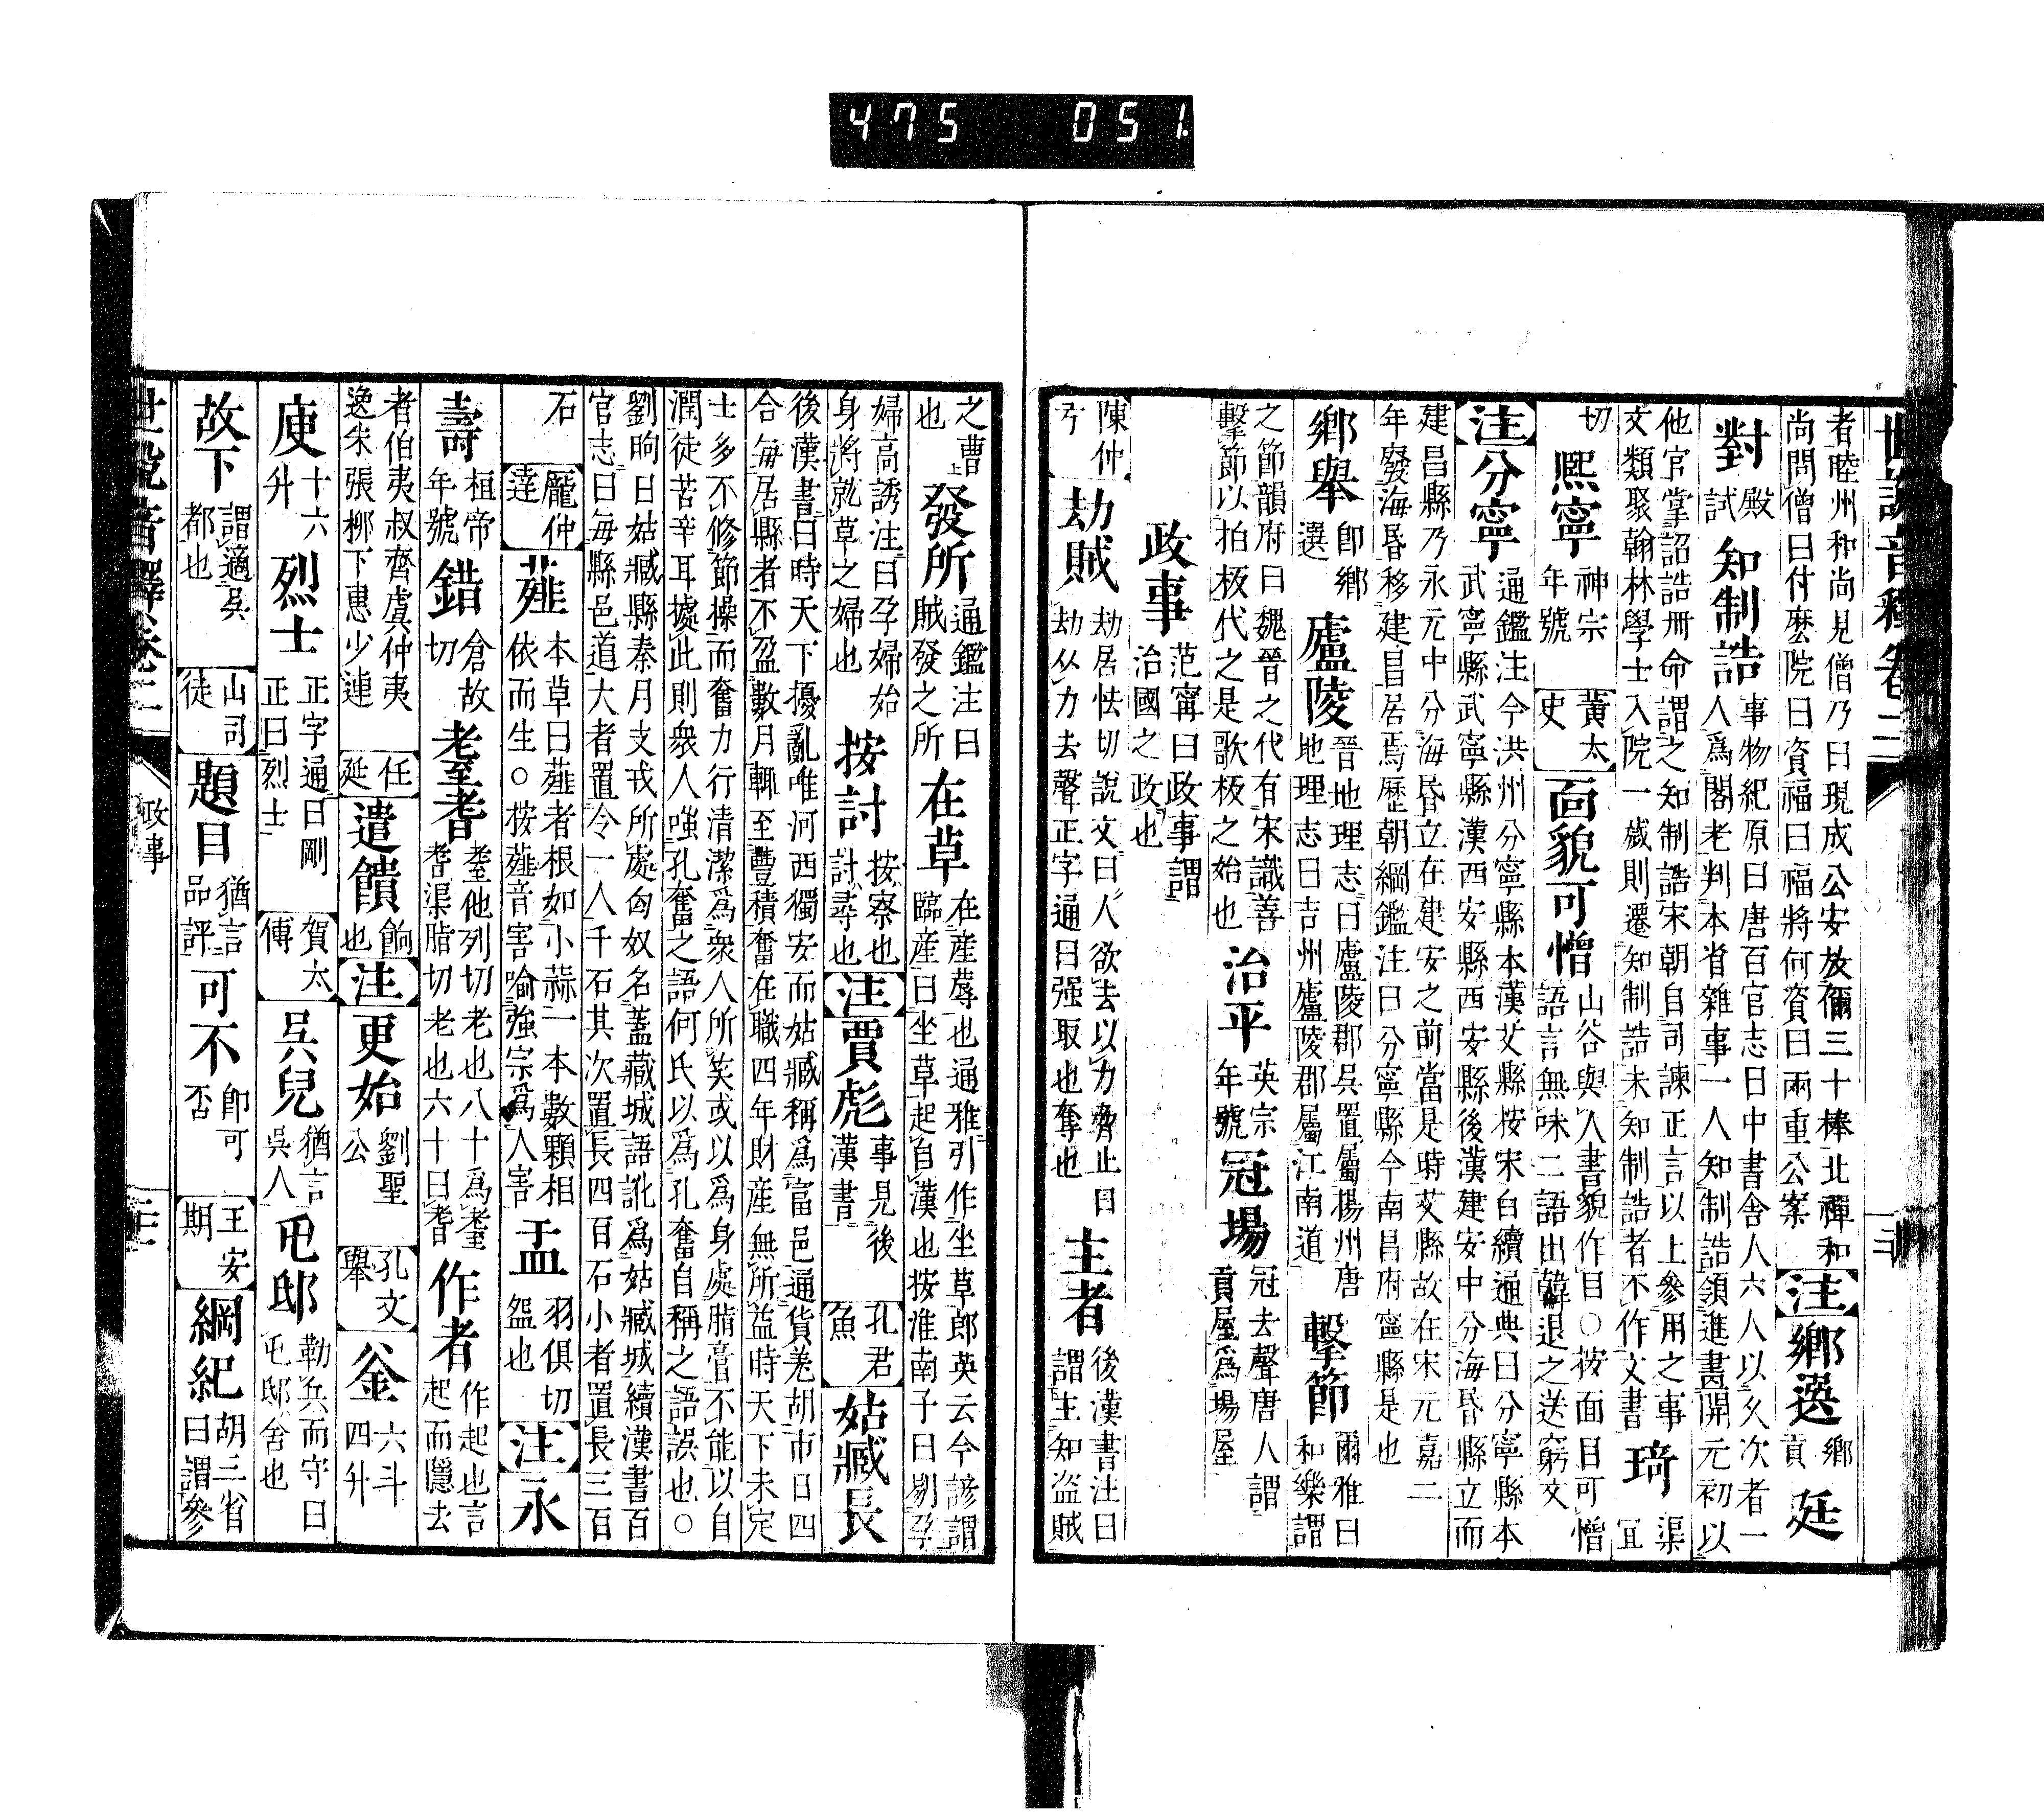 475 051.
世說音釋卷二
者睦州和尚見僧乃曰現成公案放儞三十棒北禪和
尚問僧曰付麼院曰資福曰福將何資曰兩重公案【注】鄉選鄉貢 廷
對殿試 知制誥事物紀原曰唐百官志曰中書舍人六人以久次者一
人為閣老判本省雜事一人知制誥領進畫開元初以
他官掌詔誥冊命謂之知制誥宋朝自司諫正言以上參用之事
文類聚翰林學士入院一歲則遷知制誥未知制誥者不作文書 琦渠宜
切 熙寧神宗年號【黃太史】面貌可憎山谷與人書貌作目○按面目可憎
語言無味二語出韓退之送窮文
【注】分寧通鑑注今洪州分寧縣本漢艾縣按宋白續通典曰分寧縣本
武寧縣武寧縣漢西安縣西安縣後漢建安中分海昏縣立而
建昌縣乃永元中分海昏立在建安之前當是時艾縣故在宋元嘉二
年廢海昏移建昌居焉歷朝綱鑑注曰分寧縣今南昌府寧縣是也
鄉舉即鄉選 廬陵晉地理志曰廬陵郡吳置屬揚州唐
地理志曰吉州廬陵郡屬江南道 擊節爾雅曰
和樂謂
之節韻府曰魏晉之代有宋識善
擊節以拍板代之是歌板之始也 治平英宗年號 冠場冠去聲唐人謂
貢屋為場屋
政事范甯曰政事謂
治國之政也
【陳仲弓】劫賊劫居怯切說文曰人欲去以力脅止曰
劫从力去聲正字通曰强取也奪也 主者後漢書注曰
謂主知盜賊
之曹也 發所通鑑注曰
賊發之所 在草在產蓐也通雅引作坐草郎英云今諺謂
臨產曰坐草起自漢也按淮南子曰剔孕
婦高誘注曰孕婦始
身將就草之婦也 按討按察也
討尋也【注】賈彪事見後
漢書【孔君魚】姑臧長
後漢書曰時天下擾亂唯河西獨安而姑臧稱為富邑通貨羌胡市日四
合每居縣者不盈數月輒至豐積奮在職四年財產無所益時天下未定
士多不修節操而奮力行清潔為衆人所笑或以為身處脂膏不能以自
潤徒苦辛耳據此則衆人嗤孔奮之語何氏以為孔奮自稱之語誤也○
劉昫曰姑臧縣秦月支戎所處匈奴名蓋藏城語訛為姑臧城續漢書百
官志曰每縣邑道大者置令一人千石其次置長四百石小者置長三百
石【龐仲達】薤本草曰薤者根如小蒜一本數顆相
依而生○按薤音害喻強宗為人害 盂羽俱切
盌也【注】永
壽桓帝年號 錯倉故切 耄耆耋他列切老也八十為耋
耆渠脂切老也六十曰耆 作者作起也言
起而隱去
者伯夷叔齊虞仲夷
逸朱張柳下惠少連【任延】遣饋餉也【注】更始劉聖公【孔文舉】釜六斗四升
庾十六升 烈士正字通曰剛
正曰烈士【賀太傅】吳兒猶言吳人 屯邸勒兵而守曰
屯邸舍也
故下謂適吳都也【山司徒】題目猶言品評 可不即可否【王安期】綱紀胡三省
曰謂參
世說音釋卷二
政事